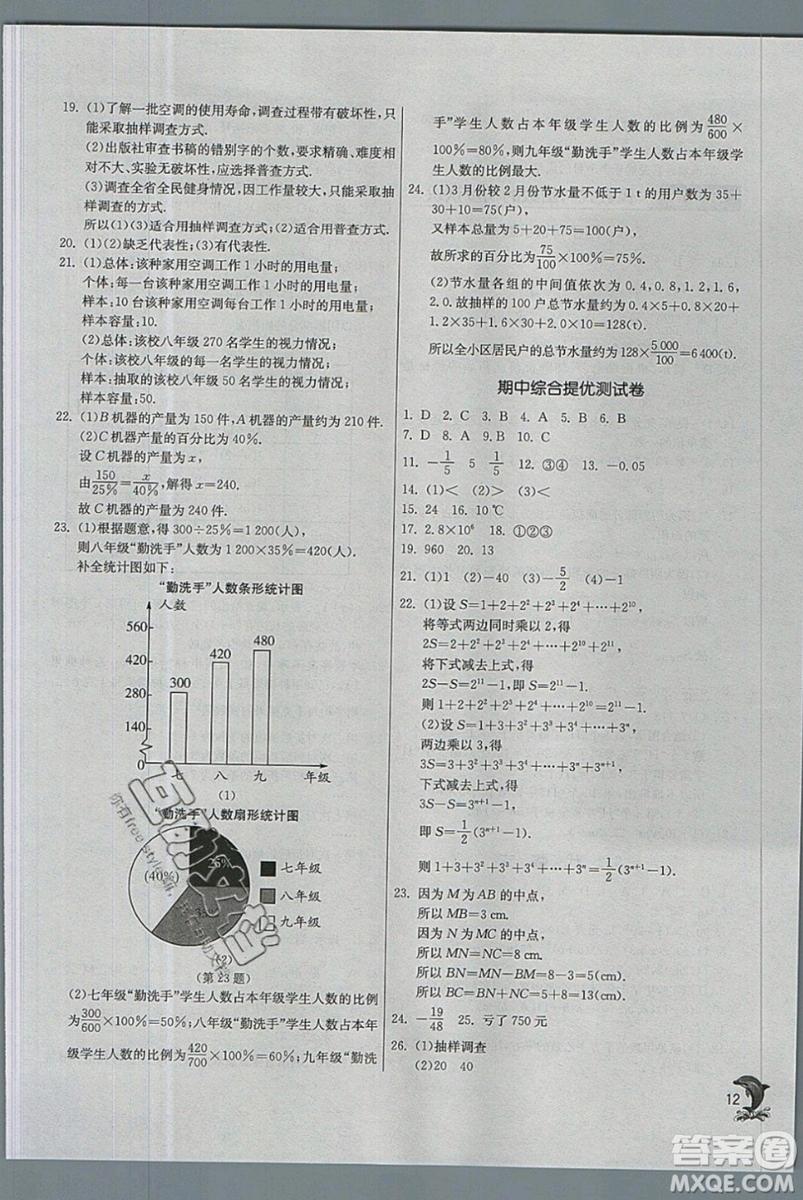 19. (1)了解一批空调的使用寿命,调查过程带有破坏性,只
能采取抽样调查方式.
(2)出版社审查书稿的错别字的个数,要求精确、难度相
对不大、实验无破坏性,应选择普查方式.
(3)调查全省全民健身情况,因工作量较大,只能采取抽
样调查的方式.
所以(1)(3)适合用抽样调查方式;(2)适合用普查方式.
20. (1)(2)缺乏代表性;(3)有代表性.
21. (1)总体:该种家用空调工作1小时的用电量;
个体:每一台该种家用空调工作1小时的用电量;
样本:10台该种家用空调每台工作1小时的用电量;
样本容量:10.
(2)总体:该校八年级270名学生的视力情况;
个体:该校八年级每一名学生的视力情况;
样本:抽取的该校八年级50名学生的视力情况;
样本容量:50.
22. (1)B机器的产量为150件,A机器的产量约为210件.
(2)C机器的产量的百分比为40%.
设C机器的产量为x,
由150/25%=x/40%,解得x=240.
故C机器的产量为240件.
23. (1)根据题意,得300÷25%=1 200(人),
则八年级“勤洗手”人数为1 200×35%=420(人).
补全统计图如下:
“勤洗手”人数条形统计图
人数
560
480
420
420
300
280
140
0
七 八 九 年级
(1)
“勤洗手”人数扇形统计图
25%
(40%)
七年级
八年级
九年级
(2)
(第23题)
(2)七年级“勤洗手”学生人数占本年级学生人数的比例
为300/600×100%=50%;八年级“勤洗手”学生人数占本年
级学生人数的比例为420/700×100%=60%;九年级“勤洗
手”学生人数占本年级学生人数的比例为480/600×
100%=80%,则九年级“勤洗手”人数占本年级学
生人数的比例最大.
24. (1)3月份较2月份节水量不低于1 t的用户数为35+
30+10=75(户),
又样本总量为5+20+75=100(户),
故所求的百分比为75/100×100%=75%.
(2)节水量各组的中间值依次为0.4,0.8,1.2,1.6,
2.0.故抽样的100户总节水量为0.4×5+0.8×20+
1.2×35+1.6×30+2.0×10=128(t)
所以全小区居民户的总节水量为128×5 000/100=6 400(t).
期中综合提优测试卷
1. D 2. C 3. B 4. A 5. B 6. B
7. D 8. A 9. B 10. C
11. -1/5 5 1/5 12. ③④ 13. -0.05
14. (1)< (2)> (3)<
15. 24 16. 10℃
17. 2.8×10⁶ 18. ①②③
19. 960 20. 13
21. (1)1 (2)-40 (3)-5/2 (4)-1
22. (1)设S=1+2+2²+2³+2⁴+…+2¹⁰,
将等式两边同时乘以2,得
2S=2+2²+2³+2⁴+…+2¹⁰+2¹¹,
将下式减去上式,得
2S-S=2¹¹-1,即S=2¹¹-1.
则1+2+2²+2³+2⁴+…+2¹⁰=2¹¹-1.
(2)设S=1+3+3²+3³+3⁴+…+3ⁿ,
两边乘以3,得
3S=3+3²+3³+3⁴+…+3ⁿ+3ⁿ⁺¹,
下式减去上式,得
3S-S=3ⁿ⁺¹-1,
即S=1/2(3ⁿ⁺¹-1),
则1+3+3²+3³+3⁴+…+3ⁿ=1/2(3ⁿ⁺¹-1).
23. 因为M为AB的中点,
所以MB=3 cm.
因为N为MC的中点,
所以MN=NC=8(cm).
所以BN=MN-BM=8-3=5(cm).
所以BC=BN+NC=5+8=13(cm).
24. -19/48 25. 亏了750元
26. (1)抽样调查
(2)20 40
12
答案圈
MXQE.COM